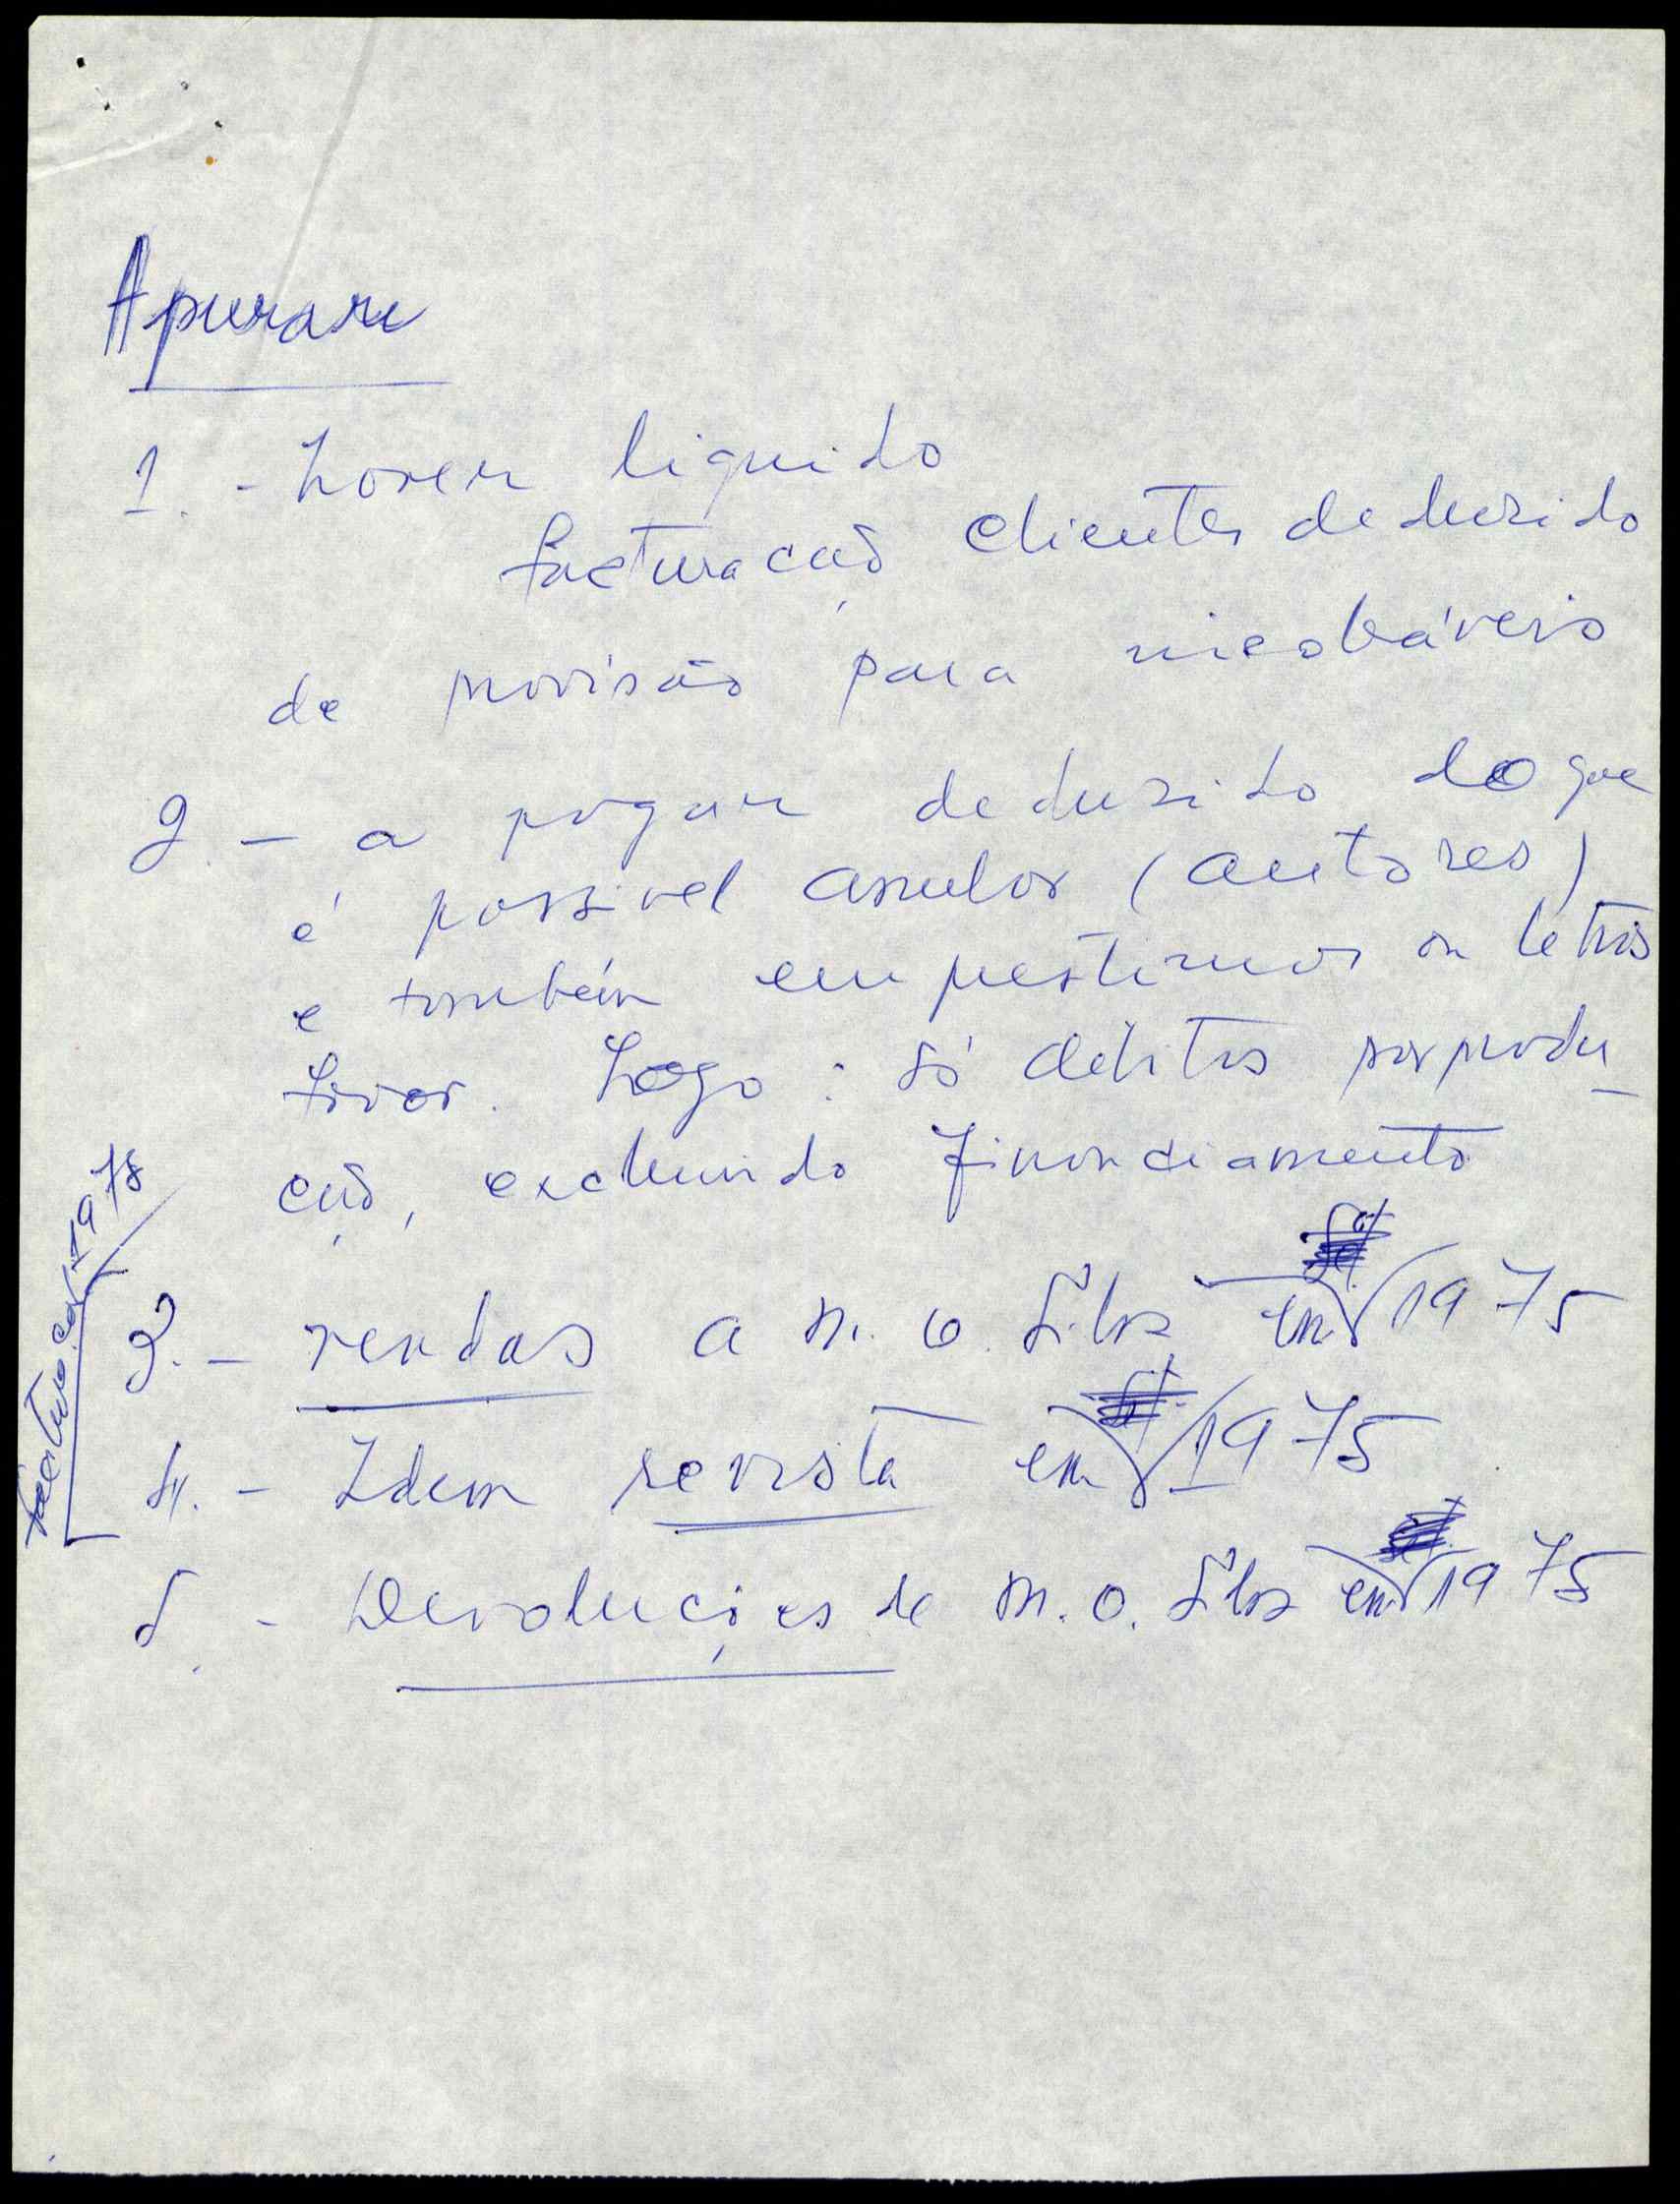 Apurar
1. - haver liquido
facturação clientes deduzido
de provisão para incobráveis
2 - a pagar deduzido do que
é possivel anular (autores)
e também empréstimos ou letras
favor. Logo: só débitos por produ-
ção, excluindo financiamento
3. - vendas a M. O. Silva em 1975
4. - Idem revista em 1975
5 - Devoluções de M. O. Silva em 1975
1975